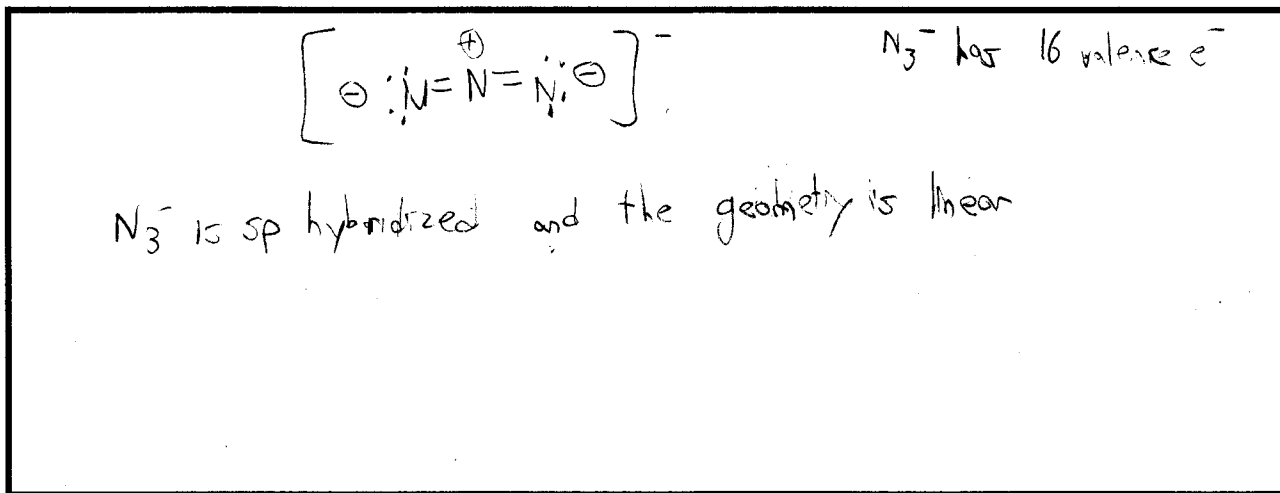 [⊖ :N̈=N⊕=N̈: ⊖]⁻
N₃⁻ has 16 valence e⁻
N₃⁻ is sp hybridized and the geometry is linear